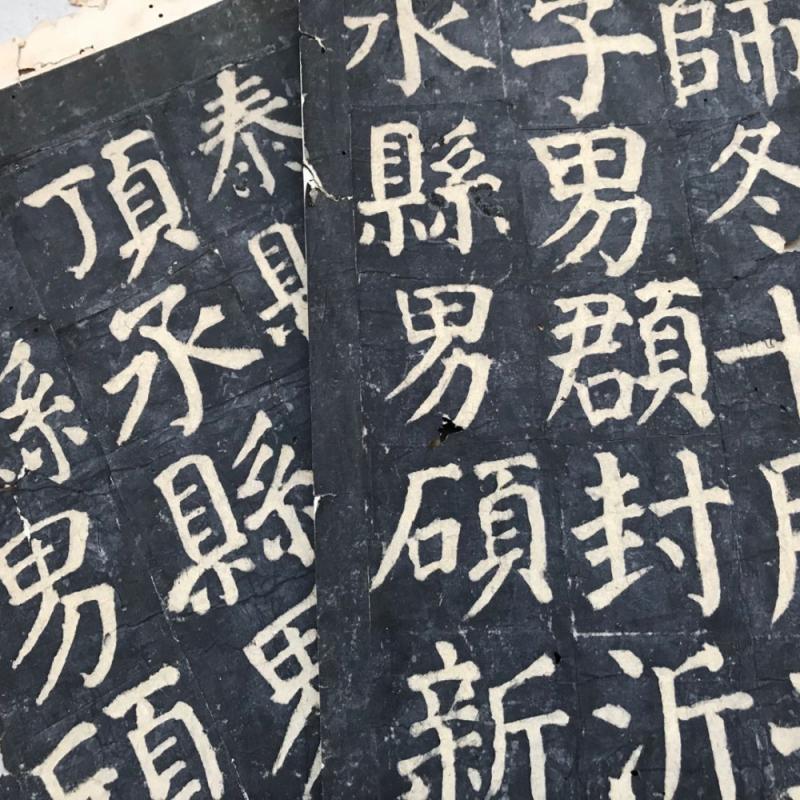 師冬十月
子男頵封沂
水縣男碩新
泰縣
頂承縣男
縣男